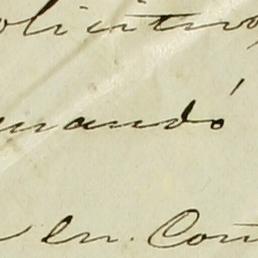 olicitud
mandó
en. Con